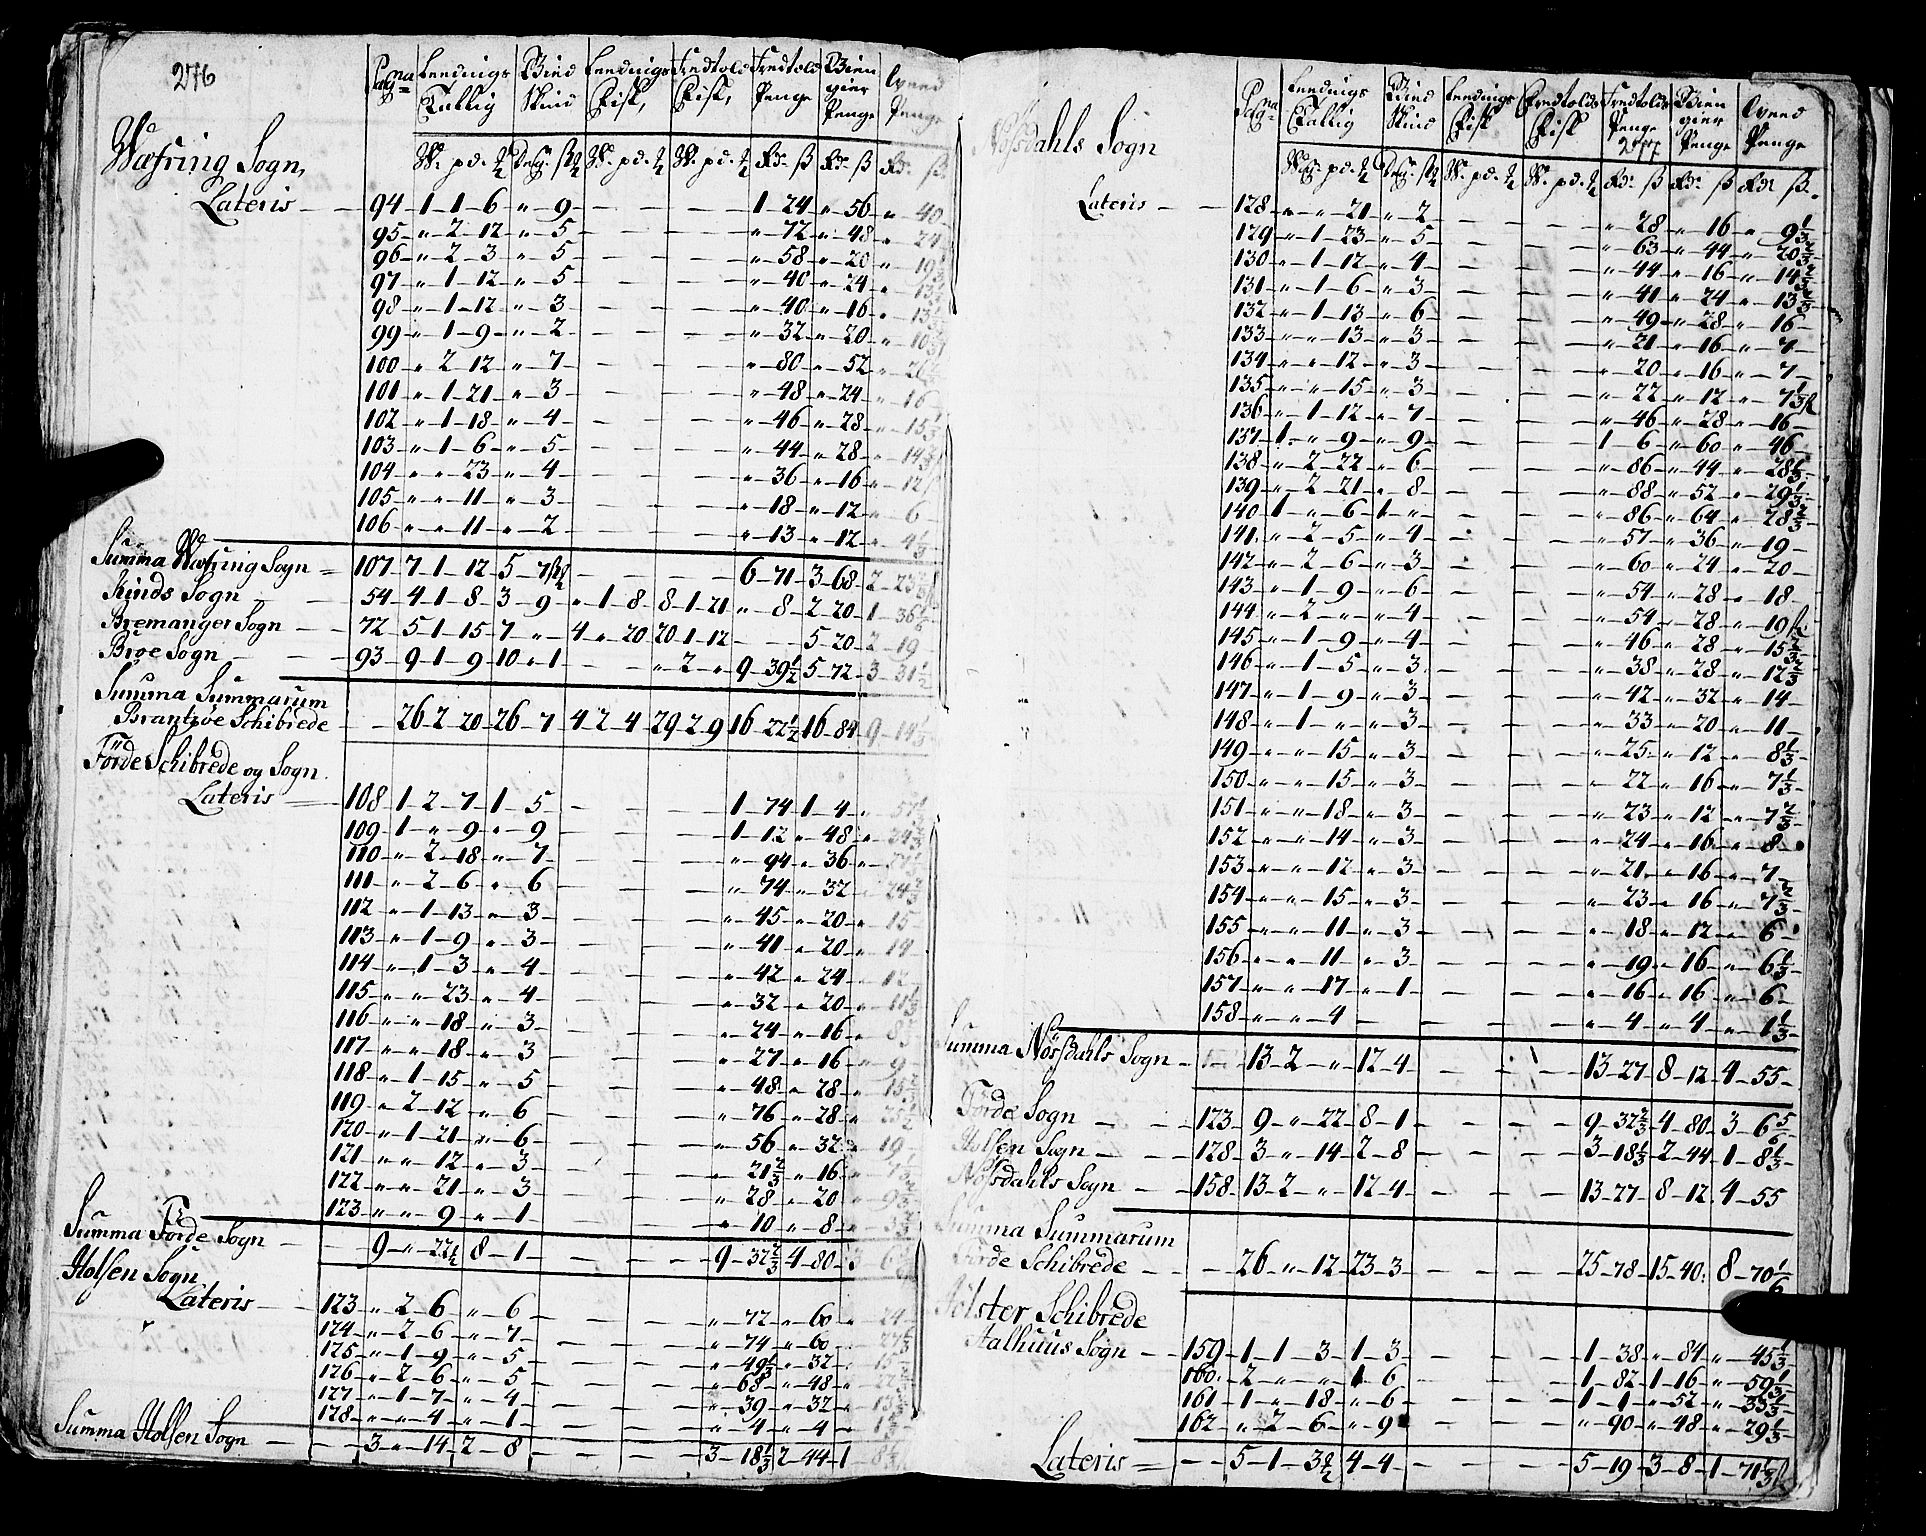 276
Pagna Leednings Tallig Bind Skind Leednings Fisk, Fredtold Fisk, Fredtold Penge Biengier Penge Penge
W. pd. Deg. W. pd. W. pd. Rdr ß Rdr ß Rdr ß
Wæfring Sogn,
Lateris — 94 1 1 6 " 9 — — 1 24 " 56 " 40
95 " 2 12 " 5 — — " 72 " 48 " 24
96 " 2 3 " 5 — — " 58 " 20 " 19
97 " 1 12 " 5 — — " 40 " 24 "
98 " 1 12 " 3 — — " 40 " 16 "
99 " 1 9 " 2 — — " 32 " 20 "
100 " 2 12 " 7 — — " 80 " 52 "
101 " 1 21 " 3 — — " 48 " 24 " 16
102 " 1 18 " 4 — — " 46 " 28 "
103 " 1 6 " 5 — — " 44 " 28 "
104 " " 23 " 4 — — " 36 " 16 " 12
105 " " 11 " 3 — — " 18 " 12 " 6
106 " " 11 " 2 — — " 13 " 12 " 4 1/3
Summa Wæfring Sogn = 107 7 1 12 5 7 — — 6 71 3 68 2
Kinds Sogn — 54 4 1 8 3 9 " 1 8 8 1 21 " 8 2 20 1
Bremanger Sogn — 72 5 1 15 7 " 4 " 20 20 1 12 — 5 20 2 19
Brøe Sogn — 93 9 1 9 10 1 — " 2 " 9 39 1/2 5 72 3 31 1/2
Summa Summarum
Brantzøe Schibrede — 26 2 20 26 7 4 2 4 29 2 9 16 22 1/2 16 84 9
Förde Schibrede og Sogn.
Lateris — 108 1 2 7 1 5 — — 1 74 1 4 "
109 1 " 9 " 9 — — 1 12 " 48 "
110 " 2 18 " 7 — — " 94 " 36 "
111 " 2 6 " 6 — — " 74 " 32 "
112 " 1 13 " 3 — — " 45 " 20 " 15
113 " 1 9 " 3 — — " 41 " 20 "
114 " 1 3 " 4 — — " 42 " 24 "
115 " " 23 " 4 — — " 32 " 20 "
116 " " 18 " 3 — — " 24 " 16 "
117 " " 18 " 3 — — " 27 " 16 " 9
118 " 1 15 " 5 — — " 48 " 28 "
119 " 2 12 " 6 — — " 76 " 28 "
120 " 1 21 " 6 — — " 56 " 32 " 19
121 " " 12 " 3 — — " 21 2/3 " 16 "
122 " " 21 " 3 — — " 28 " 20 "
123 " " 9 " 1 — — " 10 " 8 "
Summa Förde Sogn — 9 " 22 1/2 8 1 — — 9 32 2/3 4 80 3
Holsen Sogn
Lateris — 123 " 2 6 " 6 — — " 72 " 60 " 24
124 " 2 6 " 7 — — " 74 " 60 "
125 " 1 9 " 5 — — " 49 1/3 " 32 "
126 " 2 6 " 5 — — " 68 " 48 "
127 " 1 7 " 4 — — " 39 " 32 "
128 " " 4 " 1 — — " 4 " 4 "
Summa Holsen Sogn — 3 " 14 2 8 — — 3 18 1/3 2 44 1
Pagna Leednings Tallig Bind Skind Leednings Fisk Fredtolds Fisk Fredtolds Penge Biengier Penge Penge
277
W. pd. Deg. W. pd. W. pd. Rdr ß Rdr ß Rdr ß.
Nöfsdahls Sogn
Lateris — 128 " " 21 " 2 — — " 28 " 16 " 9 1/3
129 " 1 23 " 5 — — " 63 " 44 " 20 2/3
130 " 1 12 " 4 — — " 44 " 16 " 14 2/3
131 " 1 6 " 3 — — " 41 " 24 " 13 2/3
132 " 1 13 " 6 — — " 49 " 28 " 16
133 " " 13 " 3 — — " 21 " 16 " 7
134 " " 12 " 3 — — " 20 " 16 " 7
135 " " 15 " 3 — — " 22 " 12 " 7 1/3
136 " 1 12 " 7 — — " 46 " 28 " 16
137 1 " 9 " 9 — — 1 6 " 60 " 46
138 " 2 22 " 6 — — " 86 " 44 " 28
139 " 2 21 " 8 — — " 88 " 52 " 29 1/3
140 1 " 6 1 " — — " 86 " 64 " 28 2/3
141 " 2 5 " 4 — — " 57 " 36 " 19
142 " 2 6 " 3 — — " 60 " 24 " 20
143 " 1 9 " 6 — — " 54 " 28 " 18
144 " 2 " " 4 — — " 54 " 28 " 19
145 " 1 9 " 4 — — " 46 " 28 " 15 2/3
146 " 1 5 " 3 — — " 38 " 28 " 12 2/3
147 " 1 9 " 3 — — " 42 " 32 " 14
148 " 1 " " 3 — — " 33 " 20 " 11
149 " " 15 " 3 — — " 25 " 12 " 8 1/3
150 " " 15 " 3 — — " 22 " 16 " 7 1/3
151 " " 18 " 3 — — " 23 " 12 " 7 2/3
152 " " 14 " 3 — — " 24 " 16 " 8
153 " " 12 " 3 — — " 21 " 16 " 7
154 " " 15 " 3 — — " 23 " 16 " 7 2/3
155 " " 11 " 3 — — " 18 " 12 " 6
156 " " 11 " 3 — — " 19 " 16 " 6 1/3
157 " " 17 " 1 — — " 16 " 16 " 6
158 " " 4 — — — " 4 " 4 " 1 1/3
Summa Nöfsdahls Sogn — 13 2 " 12 4 — — 13 27 8 12 4 55
Förde Sogn — 123 9 " 22 8 1 — — 9 32 2/3 4 80 3 6 5/6
Holsen Sogn — 128 3 " 14 2 8 — — 3 18 1/3 2 44 1 8 1/3
Nöfsdahls Sogn — 158 13 2 " 12 4 — — 13 27 8 12 4 55
Summa Summarum
Förde Schibrede — 26 " 12 23 3 — — 25 78 15 40 8 70 1/6
Jölster Schibrede
Aalhuus Sogn — 159 1 1 3 1 3 — — 1 38 " 84 " 45 1/3
160 2 " " 1 6 — — 1 82 1 16 " 59 1/3
161 1 " 18 " 6 — — 1 1 " 52 " 33 1/3
162 " 2 6 " 9 — — " 90 " 48 " 29 1/3
Lateris = — 5 1 3 4 4 — — 5 19 3 8 1 71 1/3